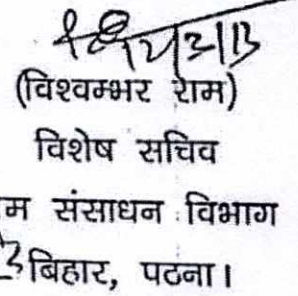 (विश्वम्भर राम)
विशेष सचिव
म संसाधन विभाग
बिहार, पटना।